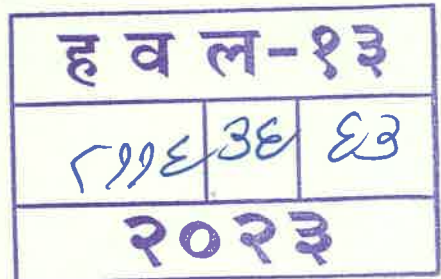 ह व ल-१३
८११६ ३६ ६३
२०२३